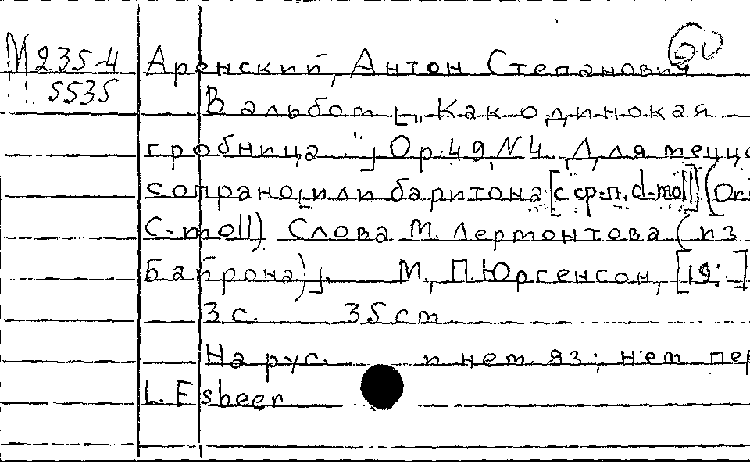 М 235-4 Аренский, Антон Степанович
5535 В альбом [„Как одинокая
гробница"], Op.49, N4. Для меццо
сопрано [или баритона [с ф-п, d-moll] (Ori
C-moll). Слова М. Лермонтова (из
Байрона)]. М., П. Юргенсон, [19 ]
3 с. 35 cm
На рус. и нем яз; нем пер
L. Esbeer